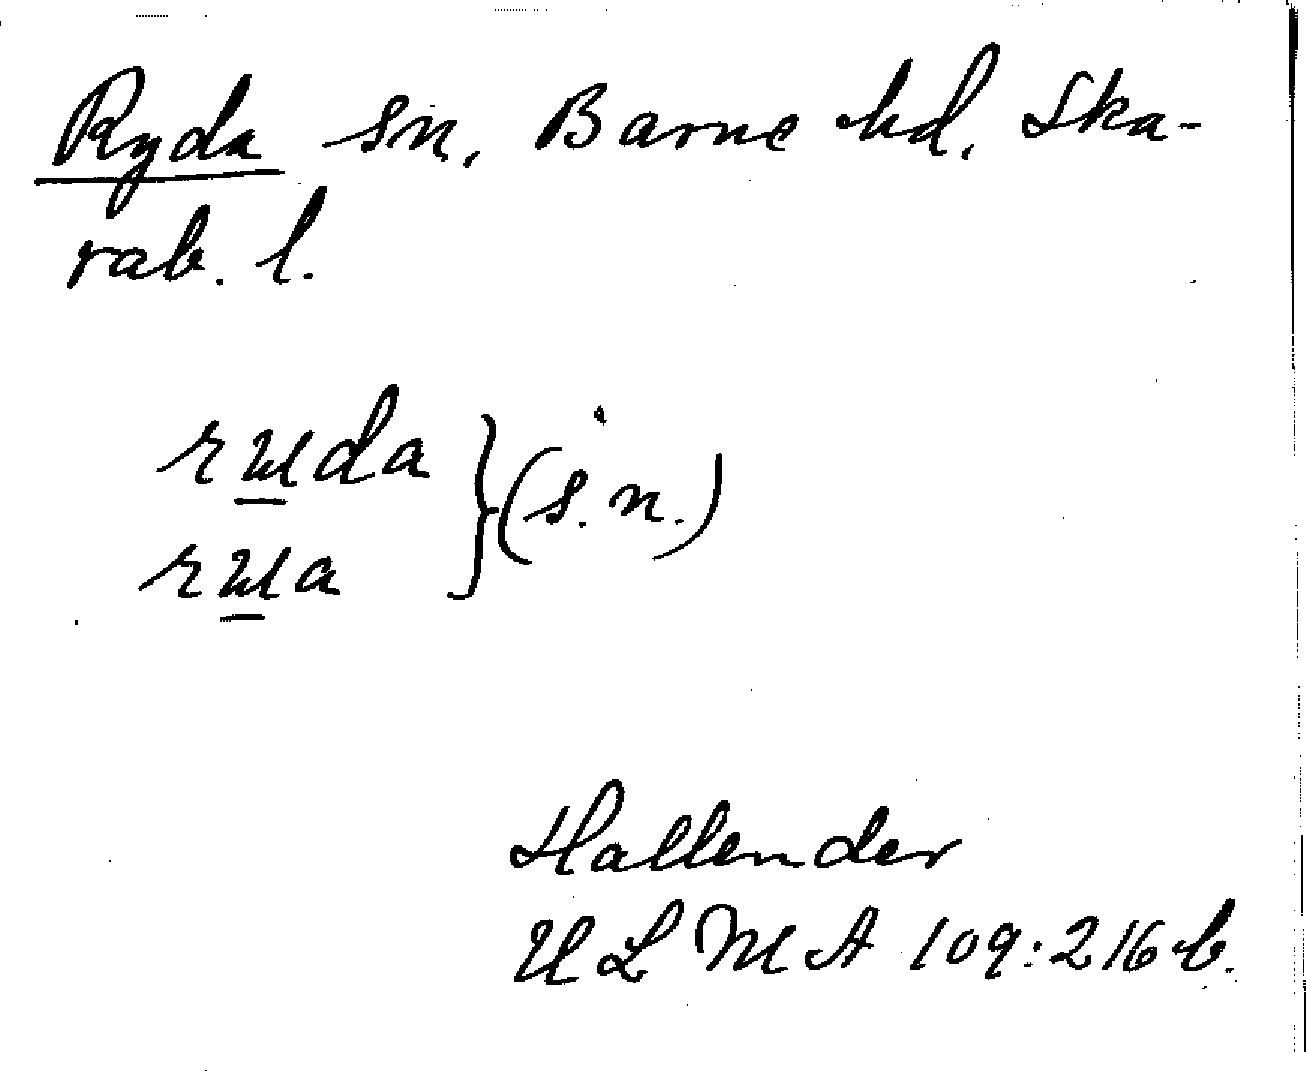 Ryda sn, Barne hd, Ska-
rab. l.
ruda
rua
} (s. n.)
Hallender
ULMA 109:216 b.